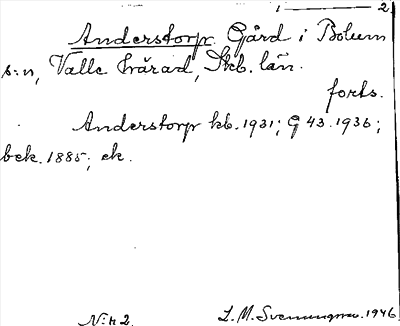 1 — 2
Anderstorp Gård i Bolum
s:n, Valle härad, Skb. län.
forts.
Anderstorp kb. 1931; G 43. 1936;
bek. 1885; ek.
N:r 2. L. M. Svenungsson. 1946